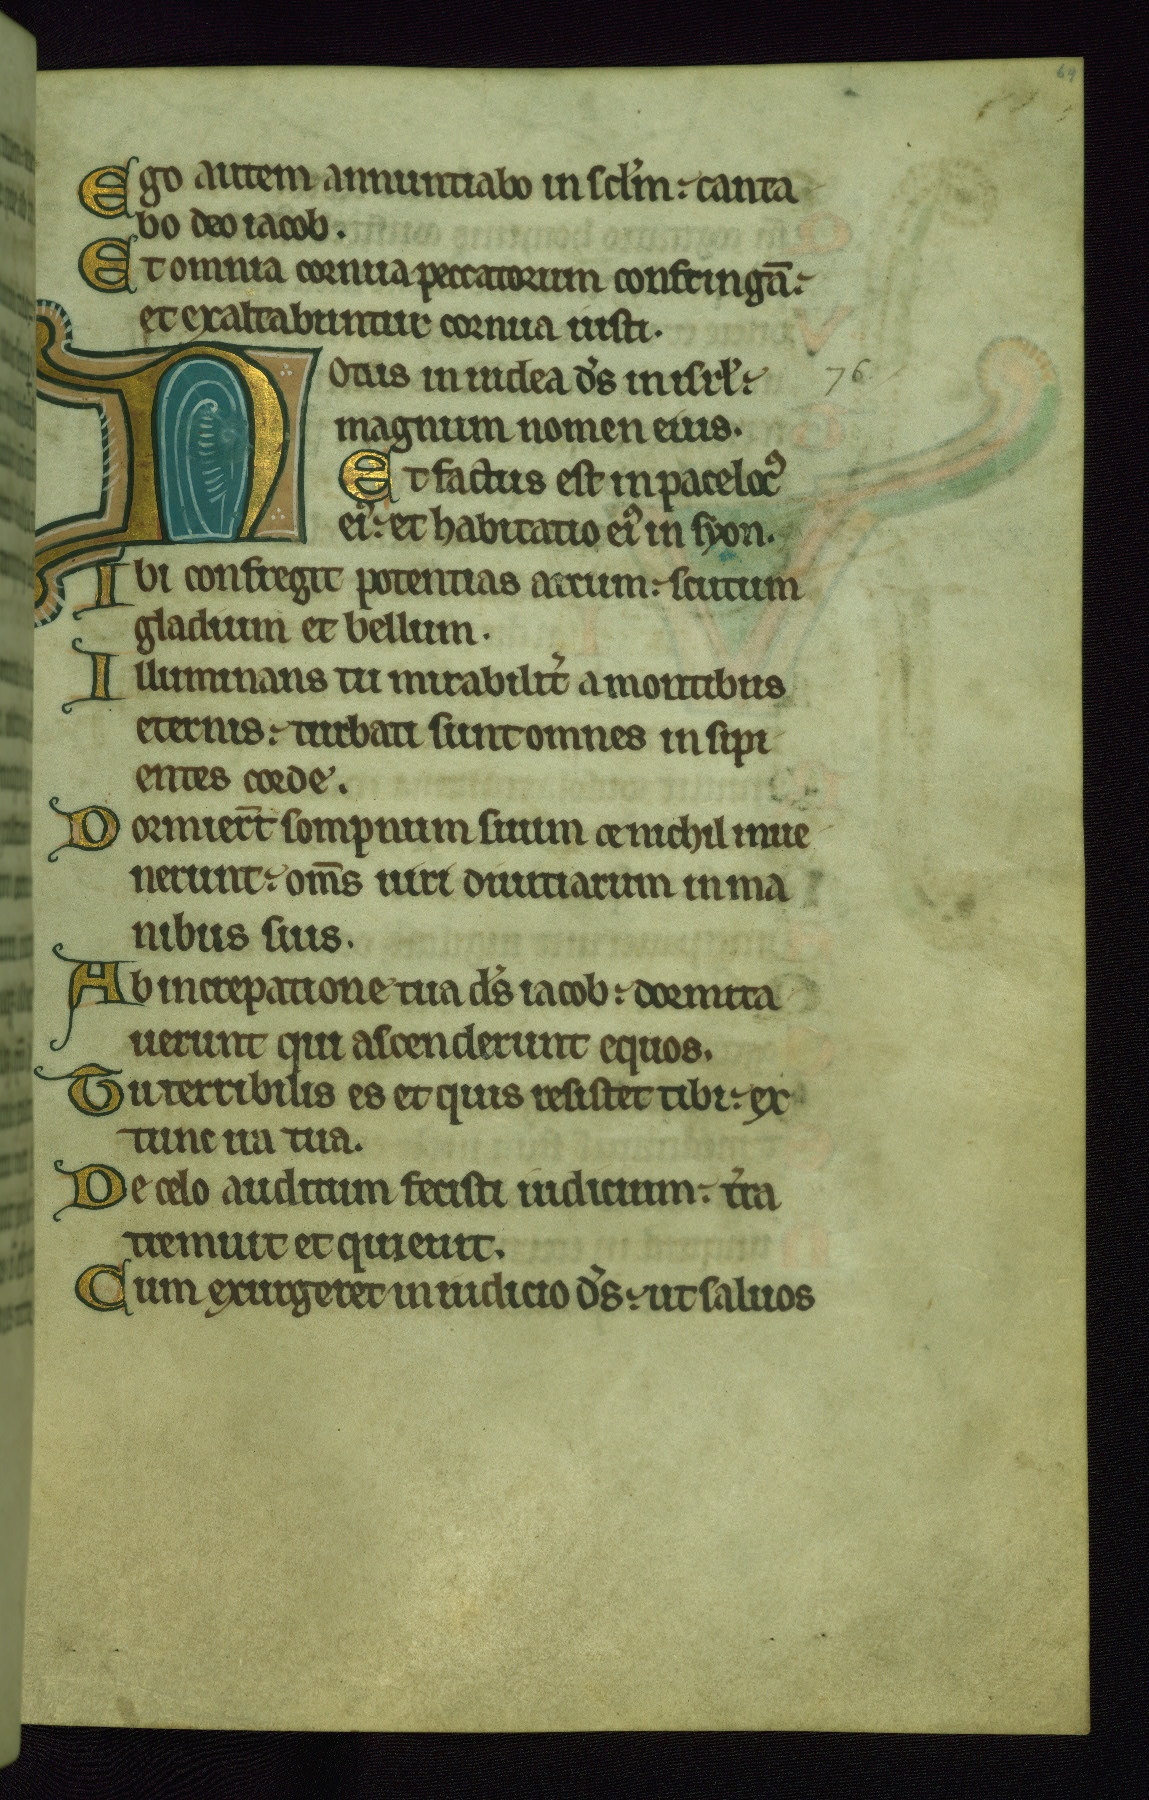 69
Ego autem annuntiabo in sclm̄: canta
bo deo iacob.
Et omnia cornua peccatorum confringā:
et exaltabuntur cornua iusti.
Notus in iudea d̄s in isrl̄: 76
magnum nomen eius.
Et factus est in pace locꝰ
eiꝰ: et habitatio eiꝰ in syon.
Ibi confregit potentias arcum: scutum
gladium et bellum.
Illuminans tu mirabilit̄ a montibus
eternis: turbati sunt omnes insipi
entes corde.
Dormier̄t sompnum suum et nichil inue
nerunt: om̄s uiri diuitiarum in ma
nibus suis.
Ab increpatione tua d̄s iacob: dormita
uerunt qui ascenderunt equos.
Tu terribilis es et quis resistet tibi: ex
tunc ira tua.
De celo auditum fecisti iudicium: t̄ra
tremuit et quieuit.
Cum exurgeret in iudicio d̄s: ut saluos